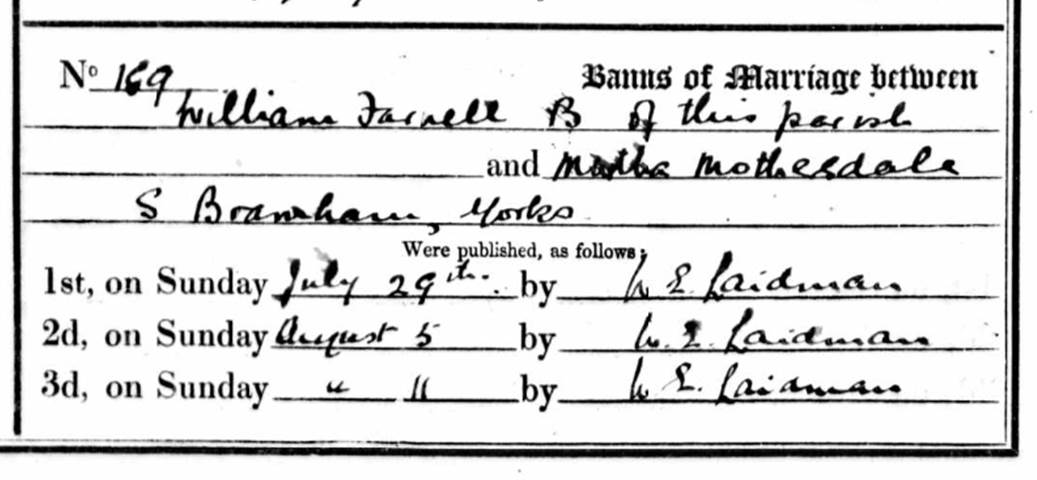 No 169 Banns of Marriage between
William Farnell B of this parish
and Martha Mothersdale
S Bramham, Yorks
Were published, as follows;
1st, on Sunday July 29th. by W E Laidman
2d, on Sunday August 5 by W. E. Laidman
3d, on Sunday " " by W E. Laidman